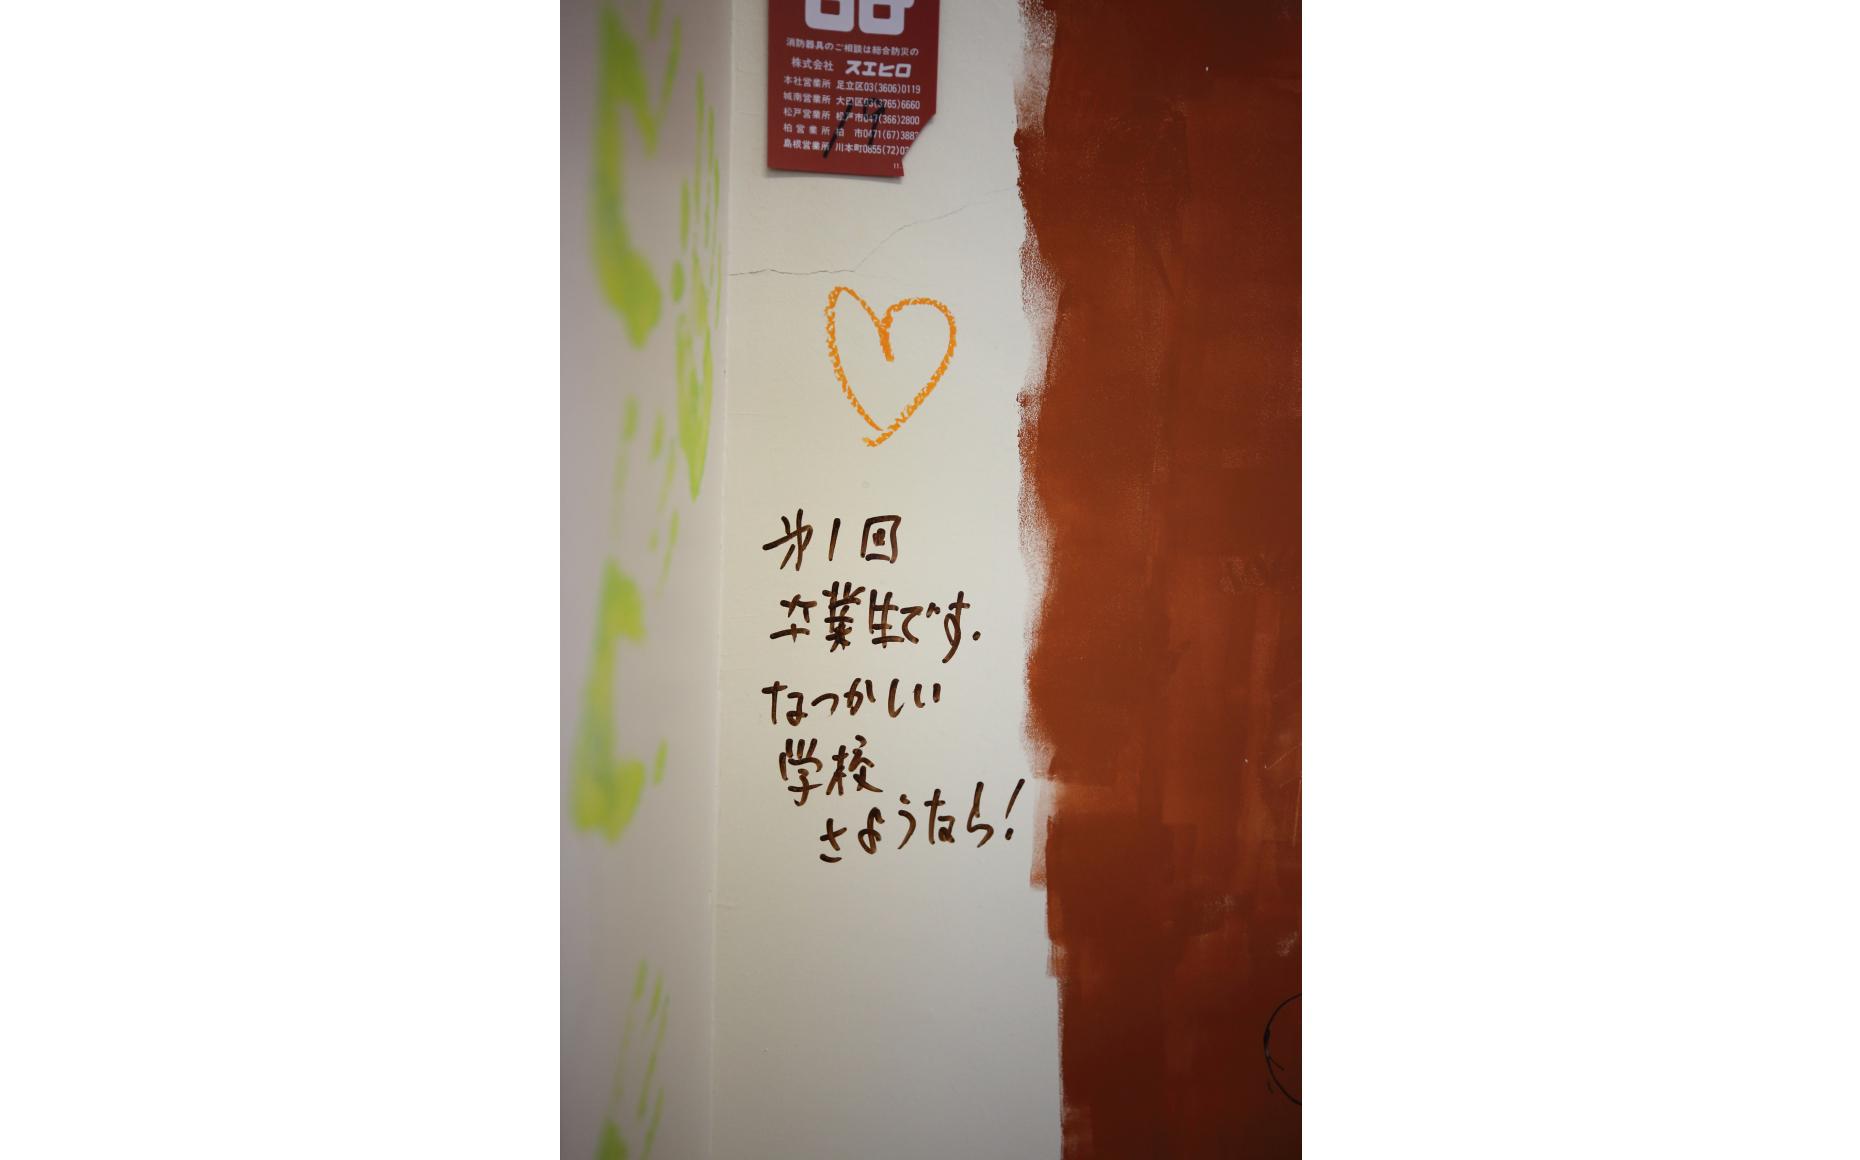 消防器具のご相談は総合防災の
株式会社 スエヒロ
本社営業所 足立区03(3606)0119
城南営業所 大田区03(3765)6660
松戸営業所 松戸市047(366)2800
柏営業所 柏 市0471(67)388
島根営業所 川本町0855(72)0
第1回
卒業生です.
なつかしい
学校
さようなら!